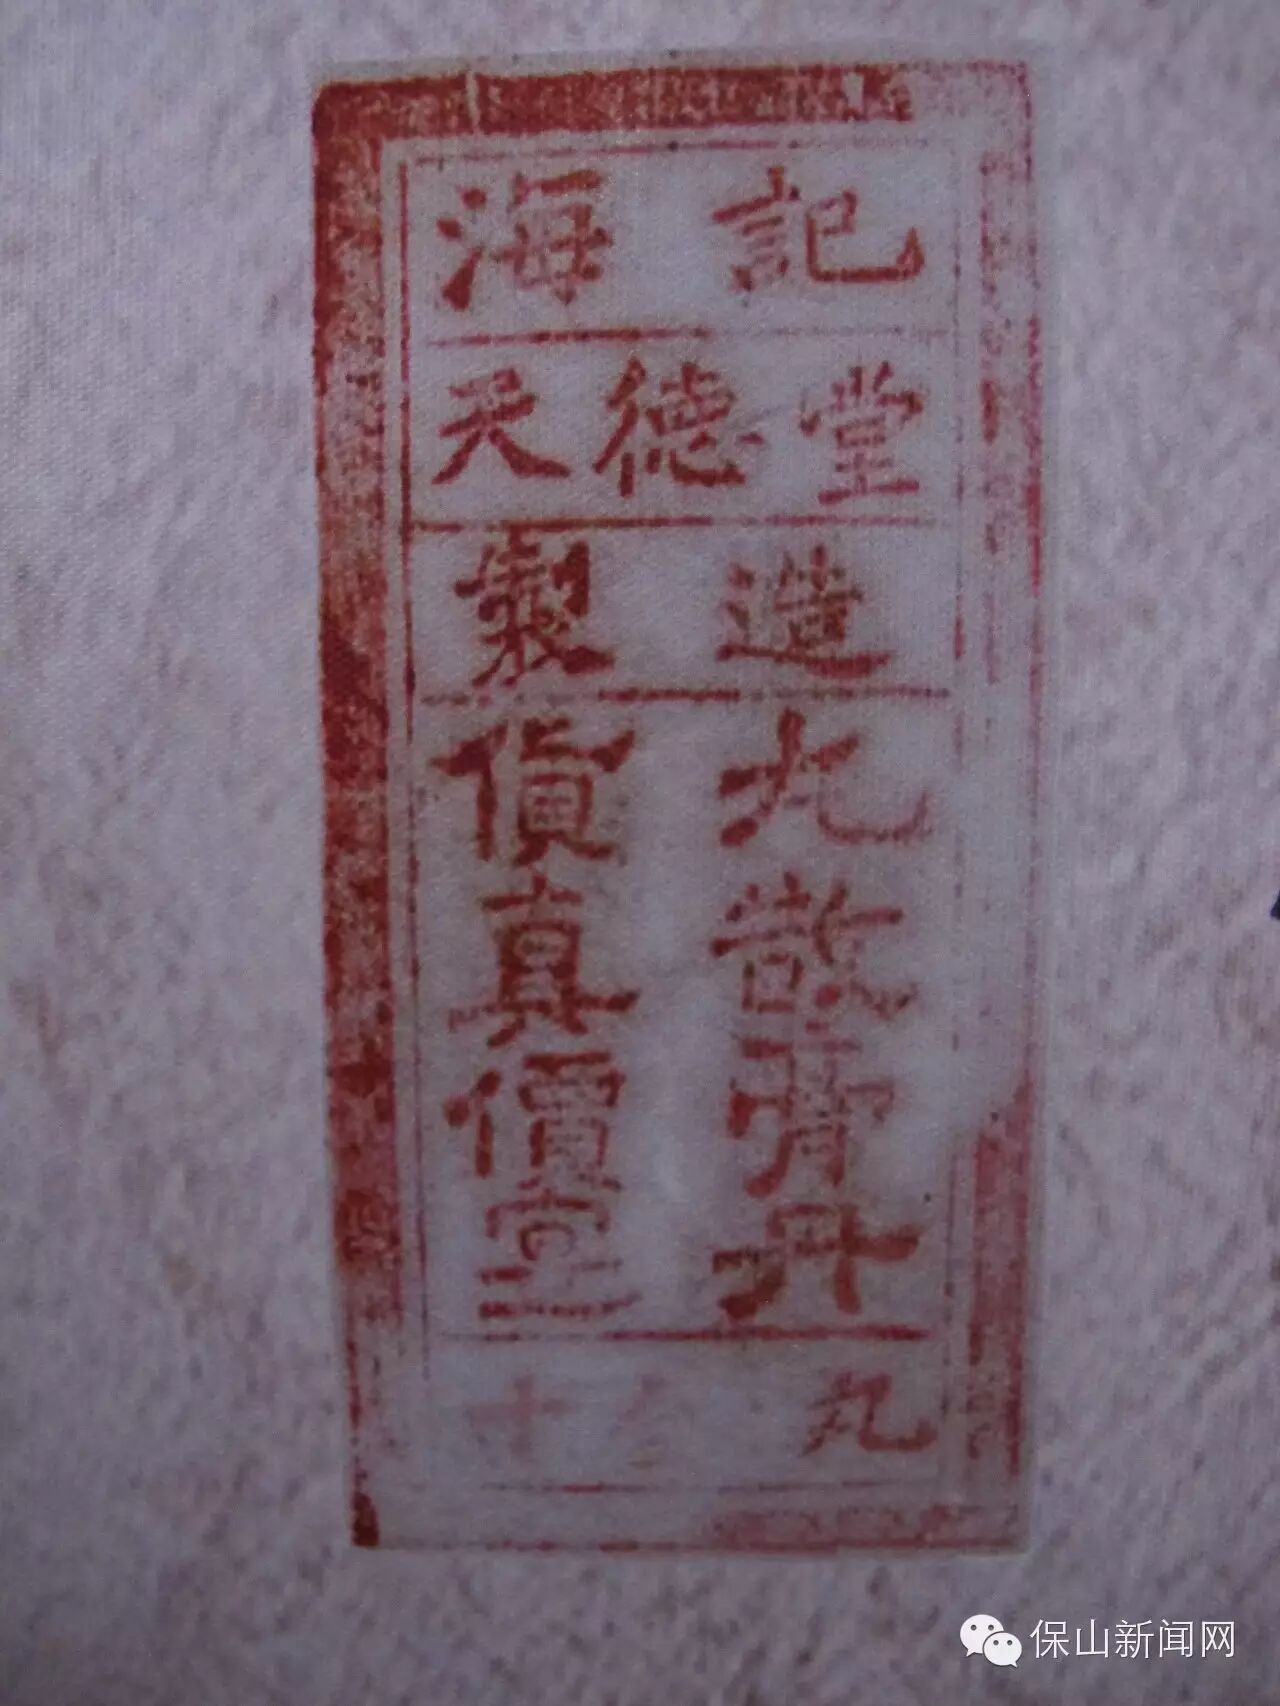 海記
天德堂
製造
丸散膏丹
貨真價寔
十 丸
保山新闻网